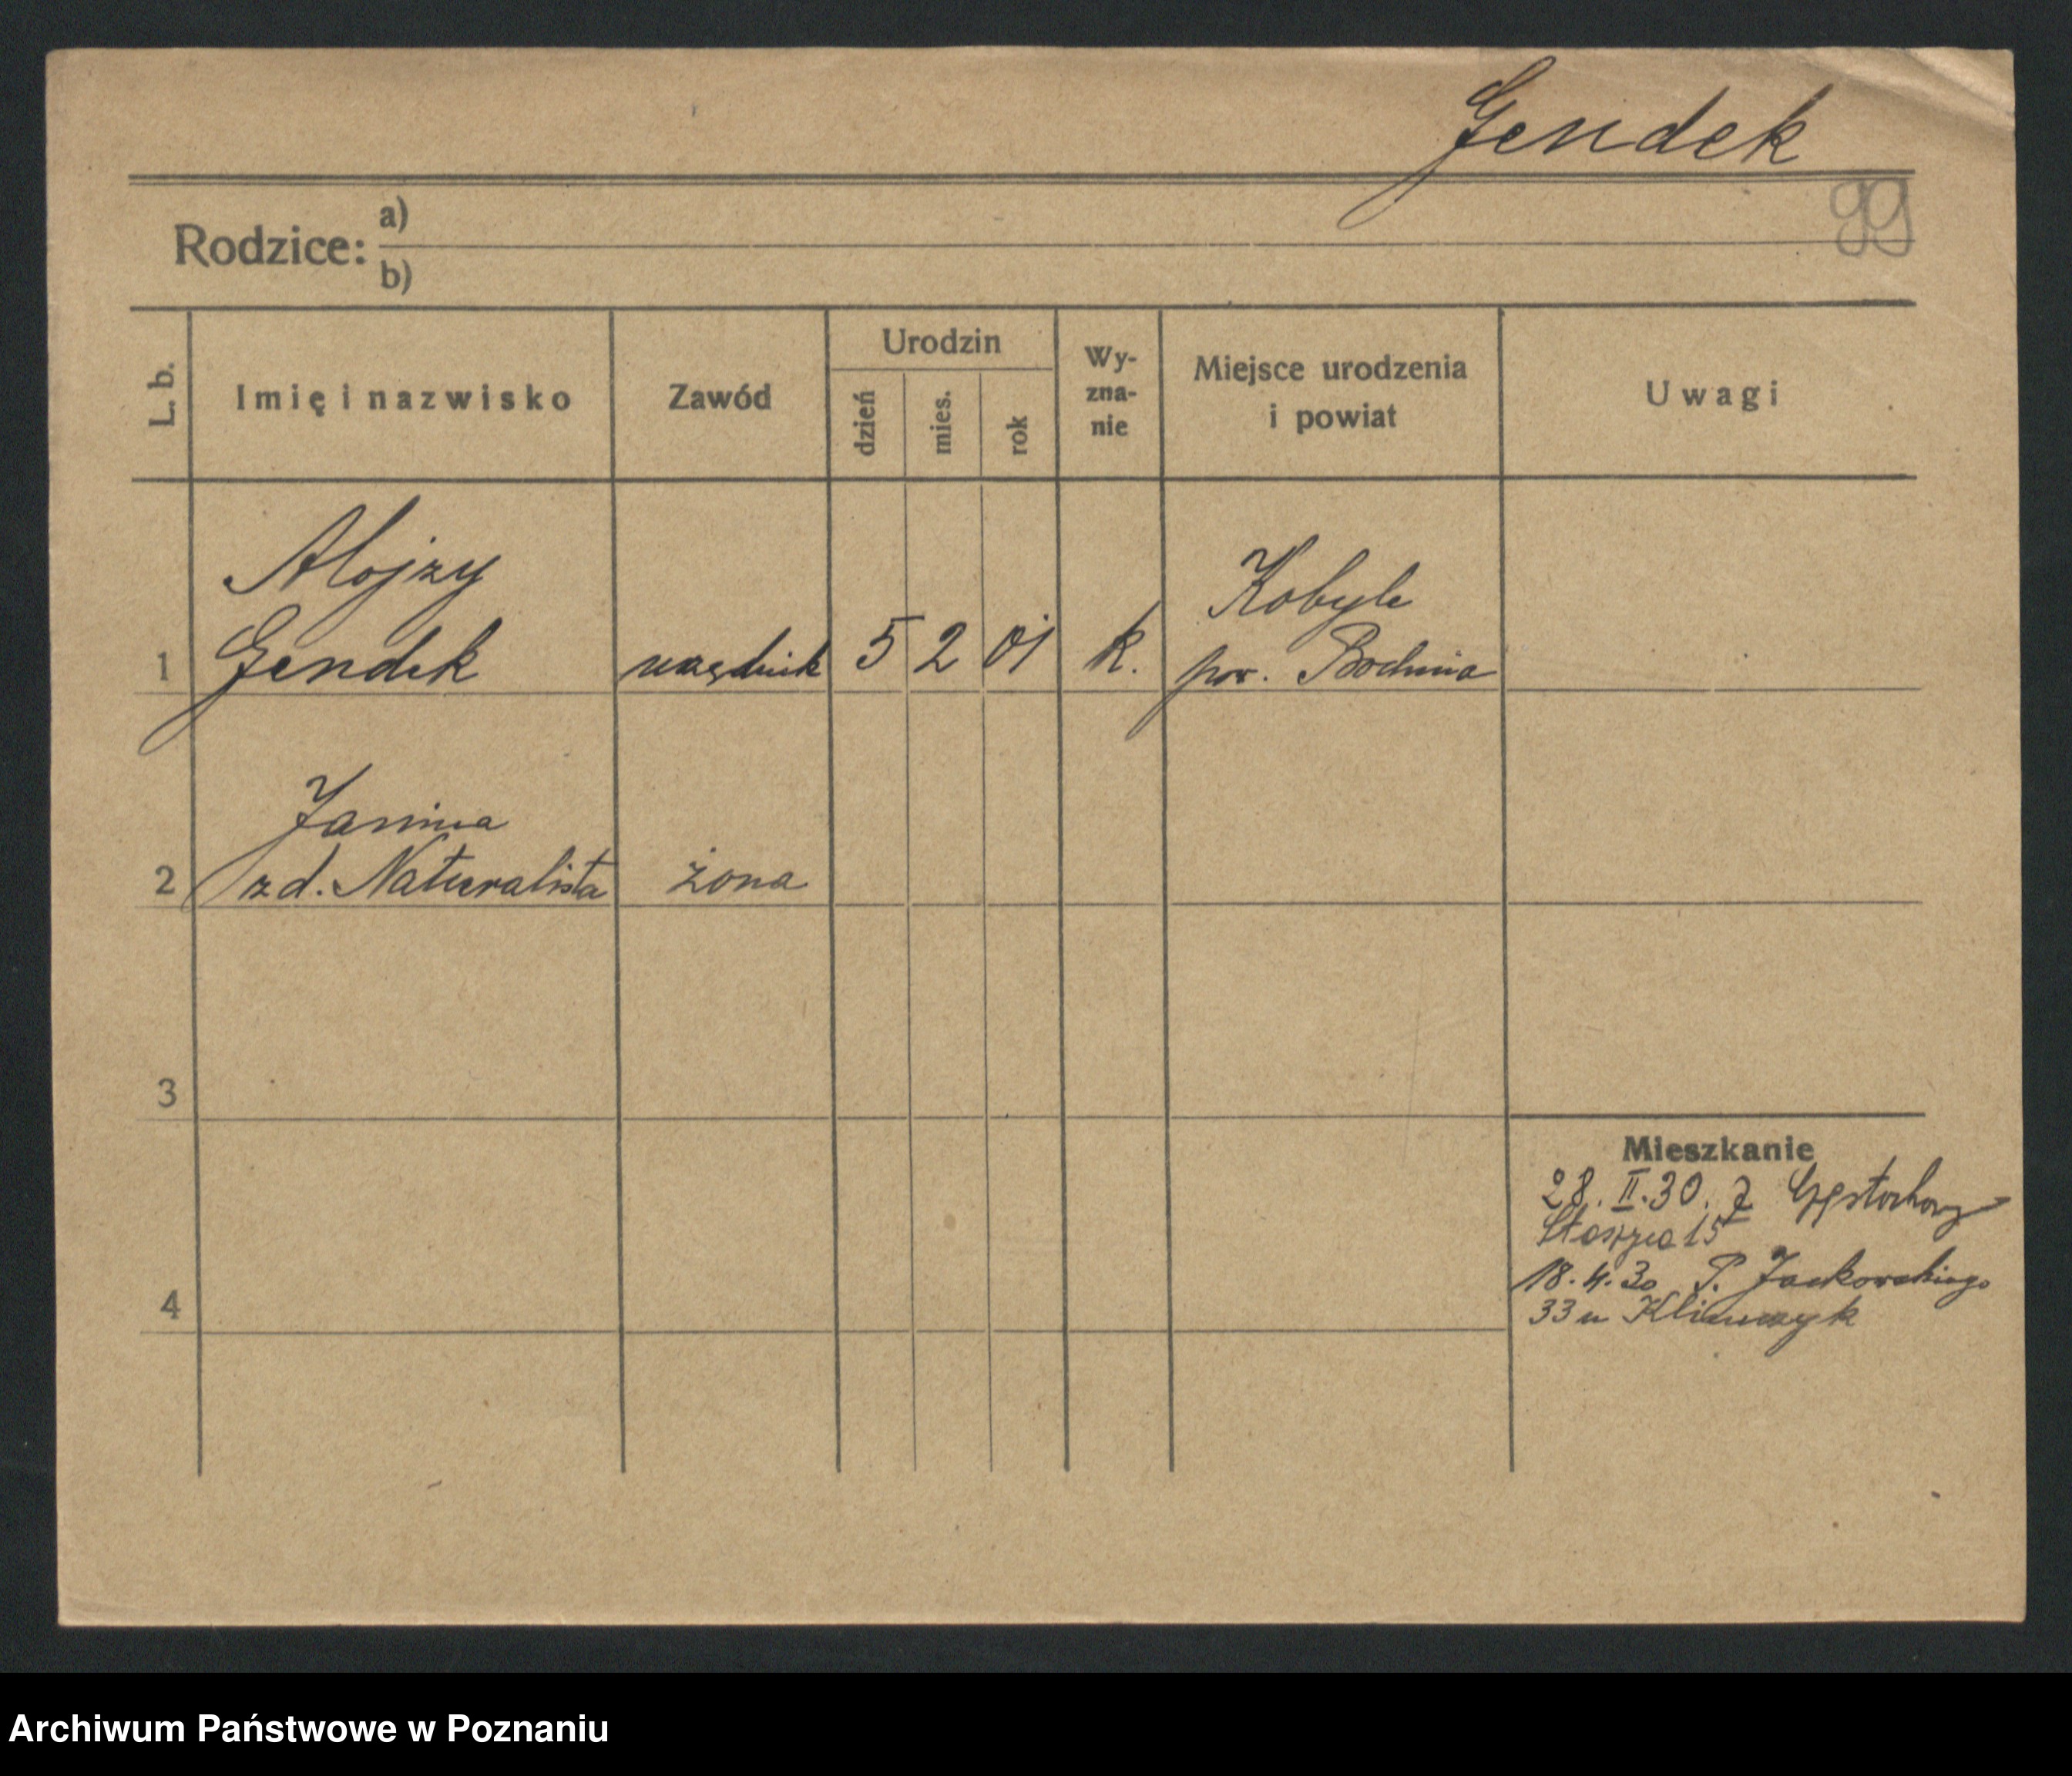 Gendek
99
Rodzice: a)
b)
L. b.
Imię i nazwisko
Zawód
Urodzin
dzień
mies.
rok
Wy-
zna-
nie
Miejsce urodzenia
i powiat
Uwagi
Alojzy
1 Gendek urzędnik 5 2 01 k. Kobyle
pow. Bochnia
Janina
2 zd. Naturalista żona
3
4
Mieszkanie
28. II. 30. z Częstochowy
Staszyca 15
18. 4. 30 P. Jackowskiego
33 u Klimczyk
Archiwum Państwowe w Poznaniu